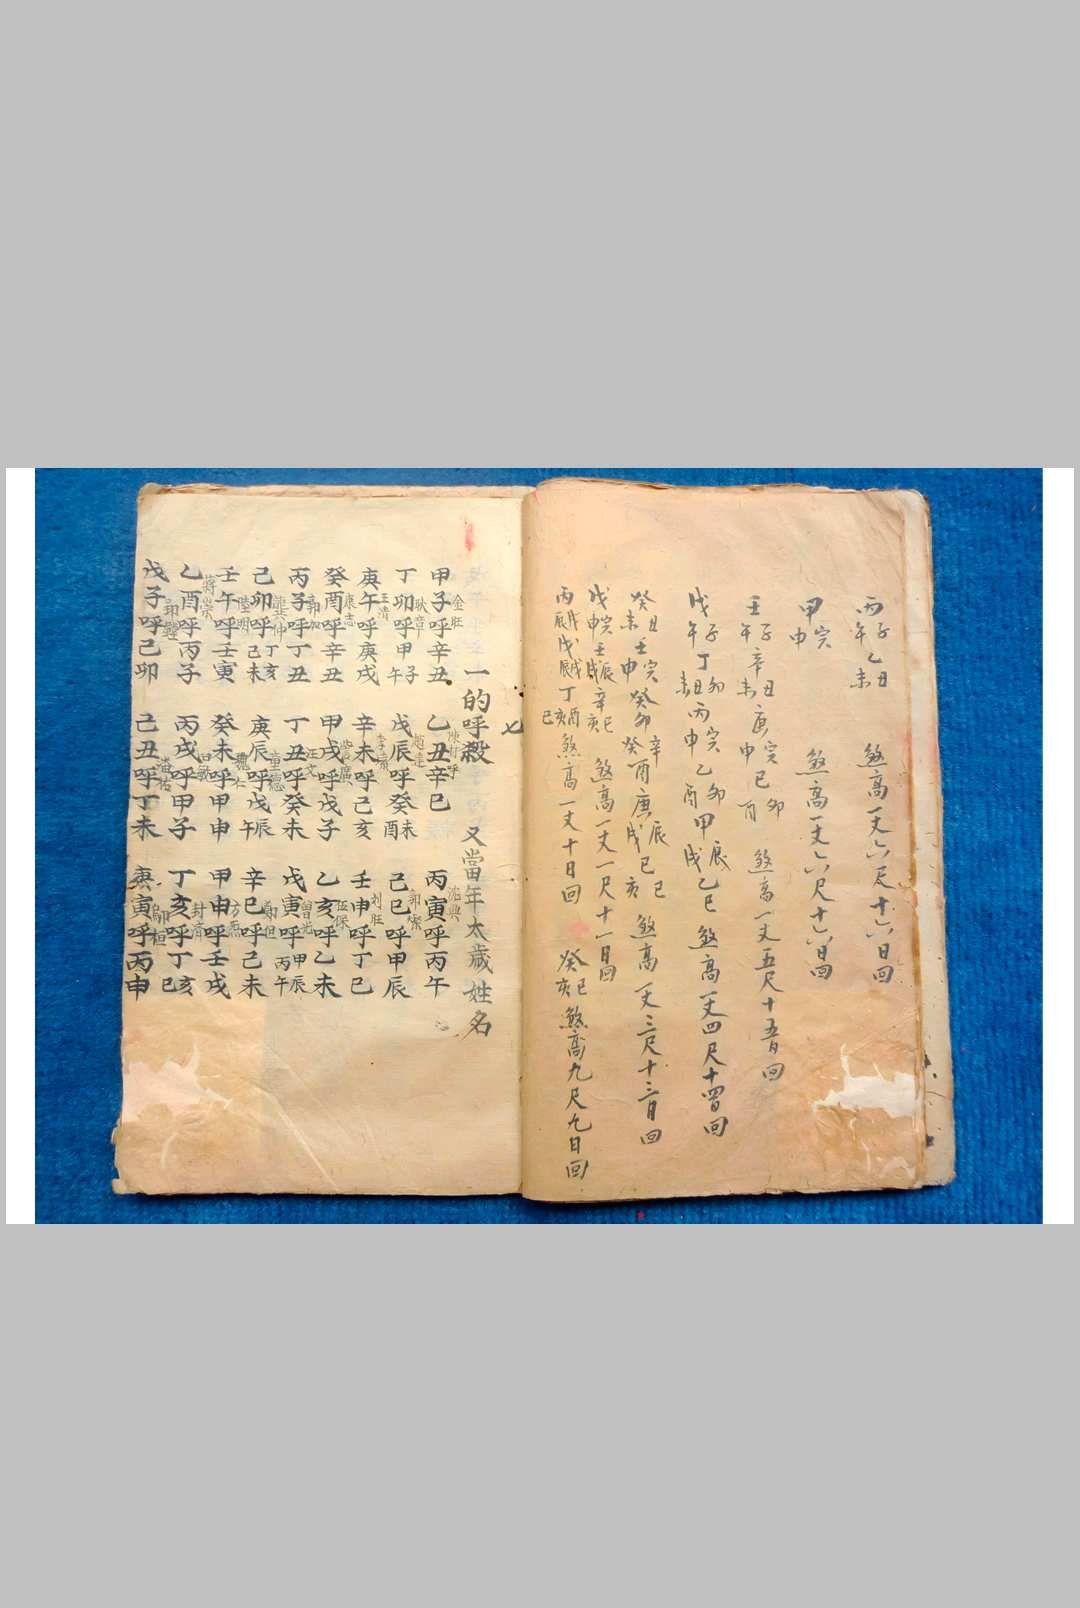 丙子 午 乙丑 未 煞高一丈六尺十六日回
甲寅 申 煞高一丈六尺十六日回
壬子 午 辛丑 未 庚寅 申 己卯 酉 煞高一丈五尺十五日回
戊子 午 丁丑 未 卯 丙寅 申 乙卯 酉 甲辰 戌 乙巳 煞高一丈四尺十四日回
癸丑 未 壬寅 申 癸卯 癸酉 辛 庚辰 戌 己巳 亥 煞高一丈三尺十三日回
戊寅 申 壬辰 戌 辛巳 亥 煞高一丈一尺十一日回
丙戌 辰 戊戌 辰 丁酉 亥 巳 煞高一丈十日回 癸巳 亥 煞高九尺九日回
七
一的呼殺 又當年太歲姓名
甲子呼辛丑 金旺 乙丑辛巳 陳材呼 丙寅呼丙午 沈興
丁卯呼甲子午 耿章 戊辰呼癸未酉 趙達 己巳呼甲辰 郭燦
庚午呼庚戌 王清 辛未呼己亥 李素 壬申呼丁巳 刘旺
癸酉呼辛丑 康志 甲戌呼戊子 誓廣 乙亥呼乙未 伍保
丙子呼丁丑 郭加 丁丑呼癸未 汪文 戊寅呼甲辰丙午 曾光
己卯呼丁亥己未 龔仲 庚辰呼戊辰午 童德 辛巳呼己未 鄭但
壬午呼壬寅 陸明 癸未呼甲申 魏仁 甲申呼壬戌 方杰
乙酉呼丙子 蔣崇 丙戌呼甲子 白敏 丁亥呼丁亥巳 封濟
戊子呼己卯 郢鏜 己丑呼丁未 潘佑 庚寅呼丙申 鄔桓